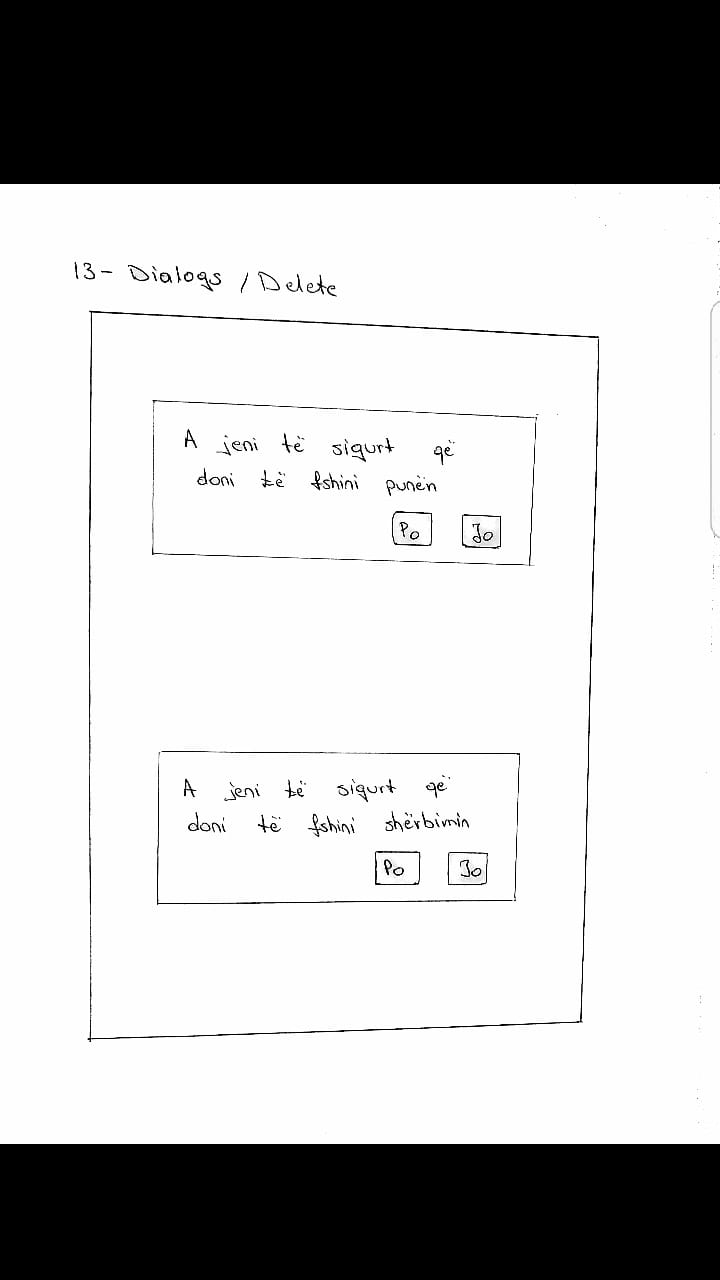 13- Dialogs / Delete
A jeni të sigurt që
doni të fshini punën
Po Jo
A jeni të sigurt që
doni të fshini shërbimin
Po Jo